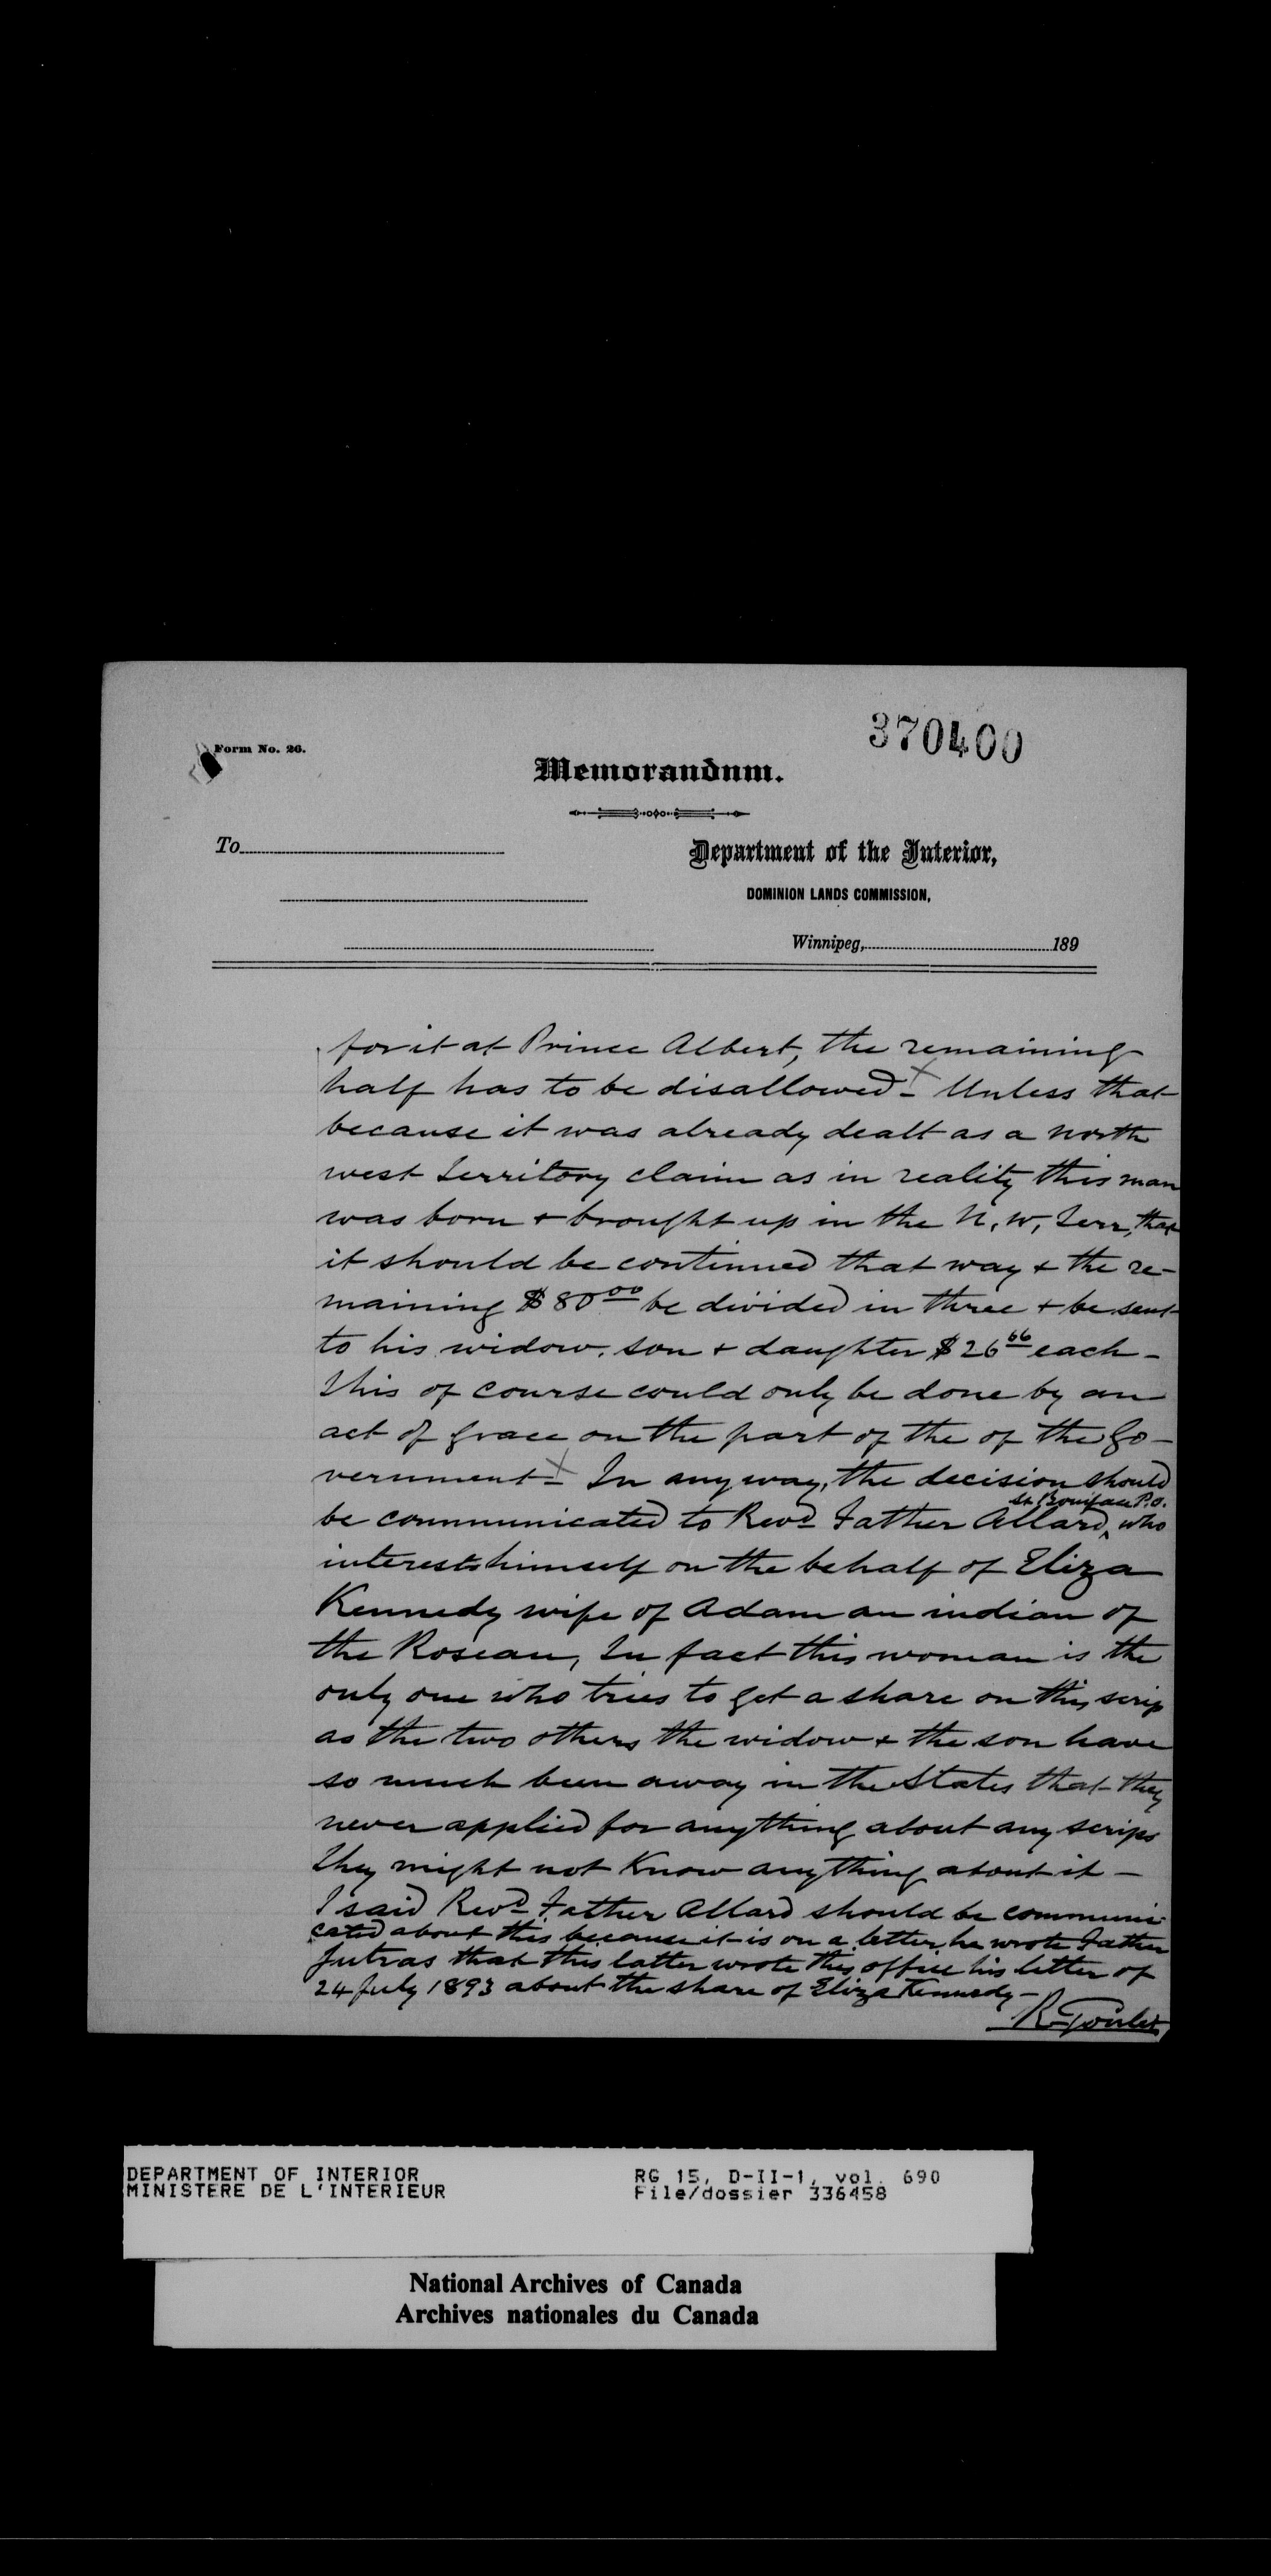 370400
Form No. 26.
Memorandum.
To
Department of the Interior,
DOMINION LANDS COMMISSION,
Winnipeg, 189
for it at Prince Albert, the remaining
half has to be disallowed - Unless that
because it was already dealt as a north
west Territory claim as in reality this man
was born + brought up in the N. W, Terr, that
it should be continued that way + the re-
maining $80 00 be divided in three + be sent
to his widow, son + daughter $26 66 each -
This of course could only be done by an
act of grace on the part of the of the Go-
vernment - In any way, the decision should
St Boniface P.O.
be communicated to Revd Father Allard, who
interests himself on the behalf of Eliza
Kennedy wife of Adam an indian of
the Roseau, In fact this woman is the
only one who tries to get a share on this scrip
as the two others the widow + the son have
so much been away in the States that they
never applied for anything about any scrips
They might not Know anything about it -
I said Revd Father Allard should be communi-
cated about this because it is on a letter he wrote Father
Jutras that this latter wrote this office his letter of
24 July 1893 about the share of Eliza Kennedy -
R. Goulet
DEPARTMENT OF INTERIOR
MINISTERE DE L'INTERIEUR
RG 15, D-II-1, vol. 690
File/dossier 336458
National Archives of Canada
Archives nationales du Canada